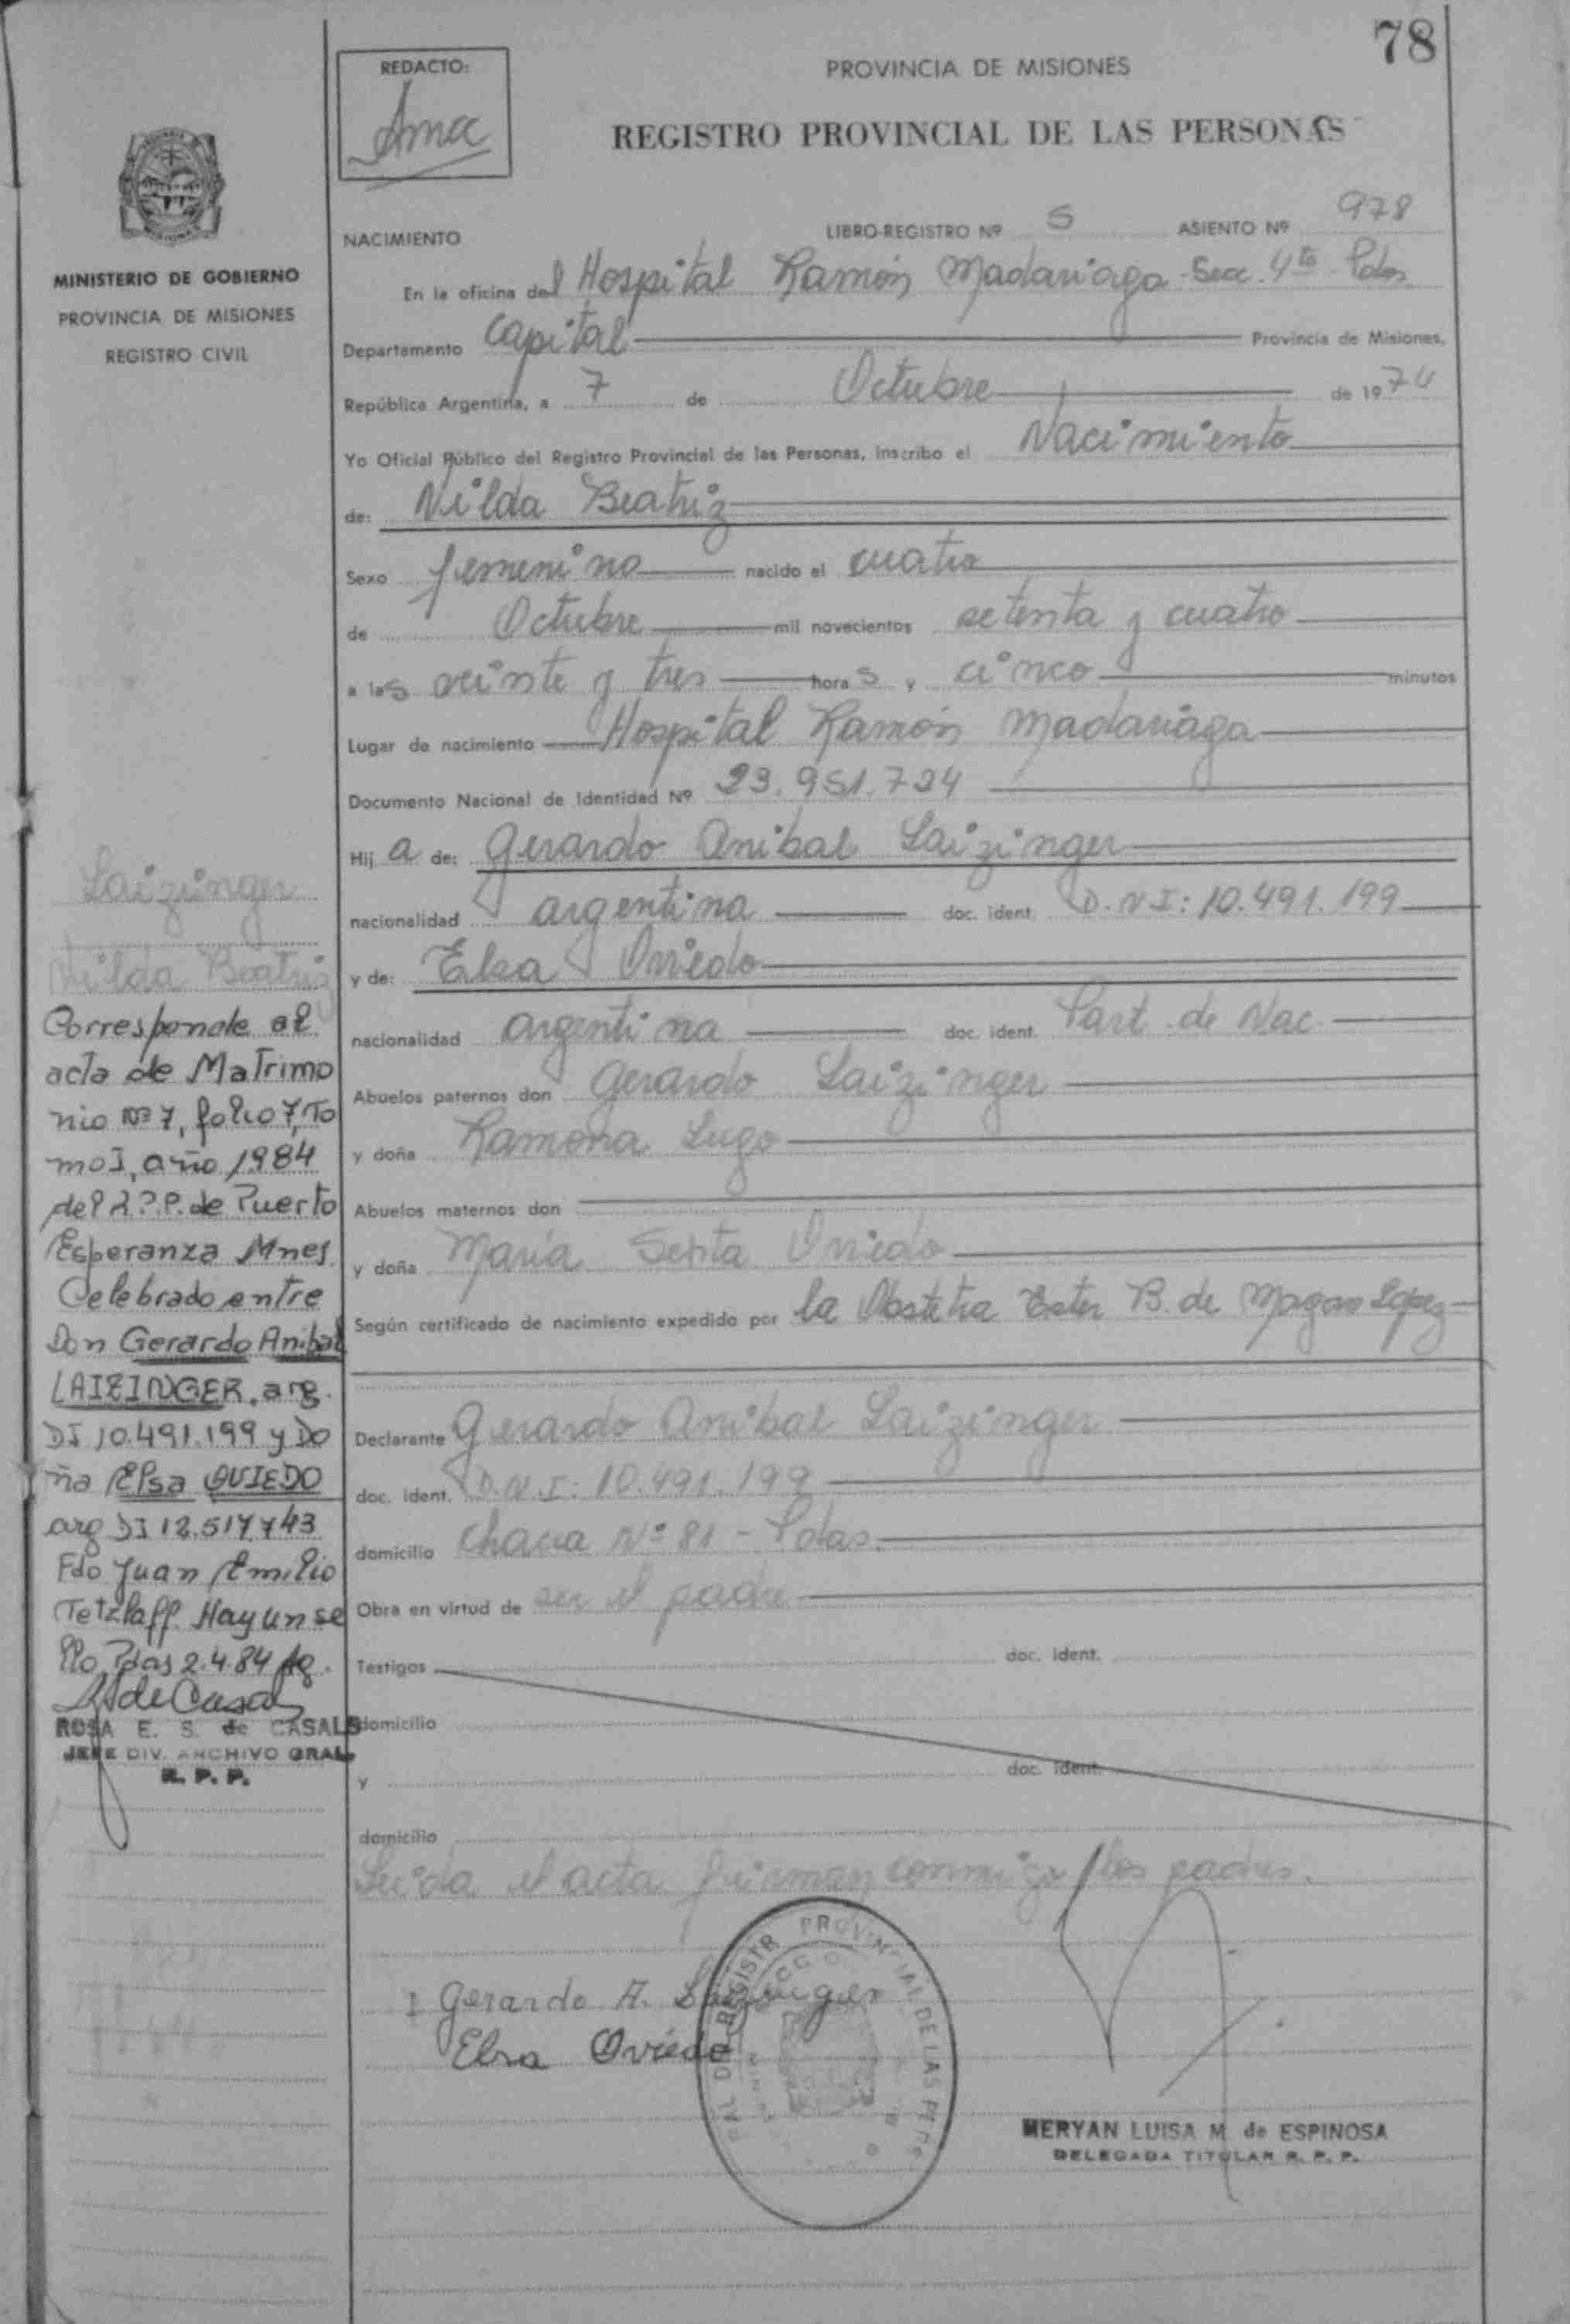 78
REDACTO:
PROVINCIA DE MISIONES
REGISTRO PROVINCIAL DE LAS PERSONAS
MINISTERIO DE GOBIERNO
PROVINCIA DE MISIONES
REGISTRO CIVIL
NACIMIENTO LIBRO-REGISTRO Nº 5 ASIENTO Nº 978
En la oficina del Hospital Ramón Madariaga Secc. 4ta Pdas
Departamento Capital Provincia de Misiones,
República Argentina, a 7 de Octubre de 1974
Yo Oficial Público del Registro Provincial de las Personas, inscribo el Nacimiento
de: Nilda Beatriz
Sexo femenino nacido el cuatro
de Octubre mil novecientos setenta y cuatro
a las veinte y tres horas y cinco minutos
Lugar de nacimiento Hospital Ramón Madariaga
Documento Nacional de Identidad Nº 23.951.724
Hija de: Gerardo Anibal Laizinger
nacionalidad argentina doc. ident. D.N.I: 10.491.199
y de: Elsa Oviedo
nacionalidad argentina doc. ident. Part. de Nac.
Abuelos paternos don Gerardo Laizinger
y doña Ramona Lugo
Abuelos maternos don
y doña María Oviedo
Según certificado de nacimiento expedido por la Obstetra Ester B. de López
Declarante Gerardo Anibal Laizinger
doc. ident. D.N.I: 10.491.199
domicilio Chacra Nº 81 - Pdas.
Obra en virtud de ser el padre
Testigos doc. ident.
domicilio
y doc. ident.
domicilio
Leida el acta firman conmigo los padres.
Gerardo A. Laizinger
Elsa Oviedo
MERYAN LUISA M. de ESPINOSA
DELEGADA TITULAR R. P. P.
Laizinger
Nilda Beatriz
Corresponde al
acta de Matrimo
nio Nº 7, folio 7, To
mo I, año 1984
del R.P.P. de Puerto
Esperanza Mnes.
Celebrado entre
Don Gerardo Anibal
LAIZINGER. arg.
DI 10.491.199 y Do
ña Elsa OVIEDO
arg DI 12.517.743
Fdo Juan Emilio
Tetzlaff. Hay un se
llo Pdas 2.4.84
ROSA E. S. de CASALS
JEFE DIV. ARCHIVO GRAL.
R. P. P.